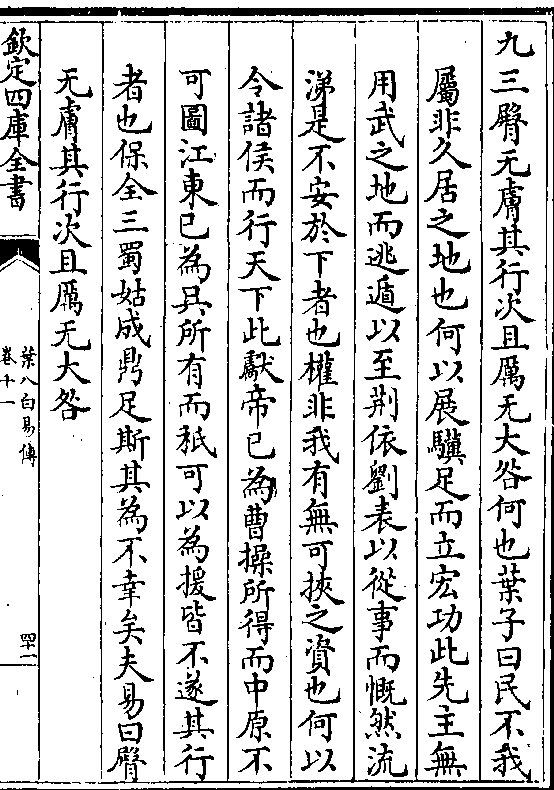 九三臀无膚其行次且厲无大咎何也葉子曰民不我
屬非久居之地也何以展驥足而立宏功此先主無
用武之地而逃遁以至荆依劉表以從事而慨然流
涕是不安於下者也權非我有無可挾之資也何以
令諸侯而行天下此獻帝已為曹操所得而中原不
可圖江東已為吳所有而秪可以為援皆不遂其行
者也保全三蜀姑成鼎足斯其為不幸矣夫易曰臀
无膚其行次且厲无大咎
欽定四庫全書
葉八白易傳
卷十一
四十一